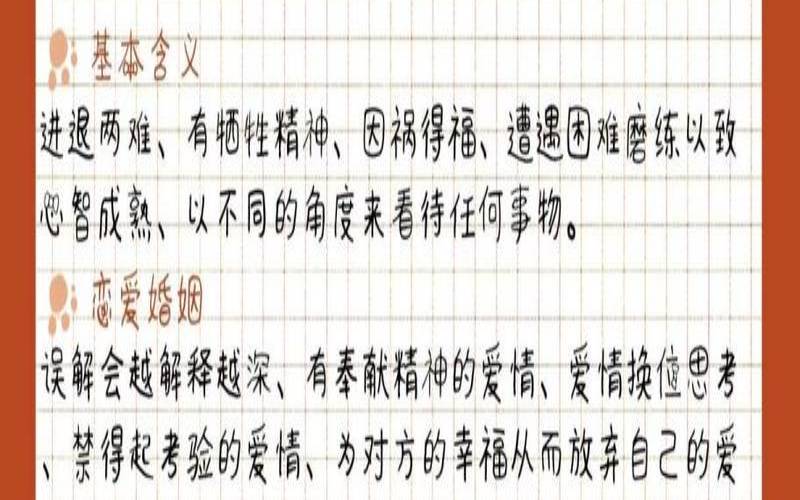 基本含义
进退两难、有牺牲精神、因祸得福、遭遇困难磨练以致
心智成熟、以不同的角度来看待任何事物。
恋爱婚姻
误解会越解释越深、有奉献精神的爱情、爱情换位思考
、禁得起考验的爱情、为对方的幸福从而放弃自己的爱